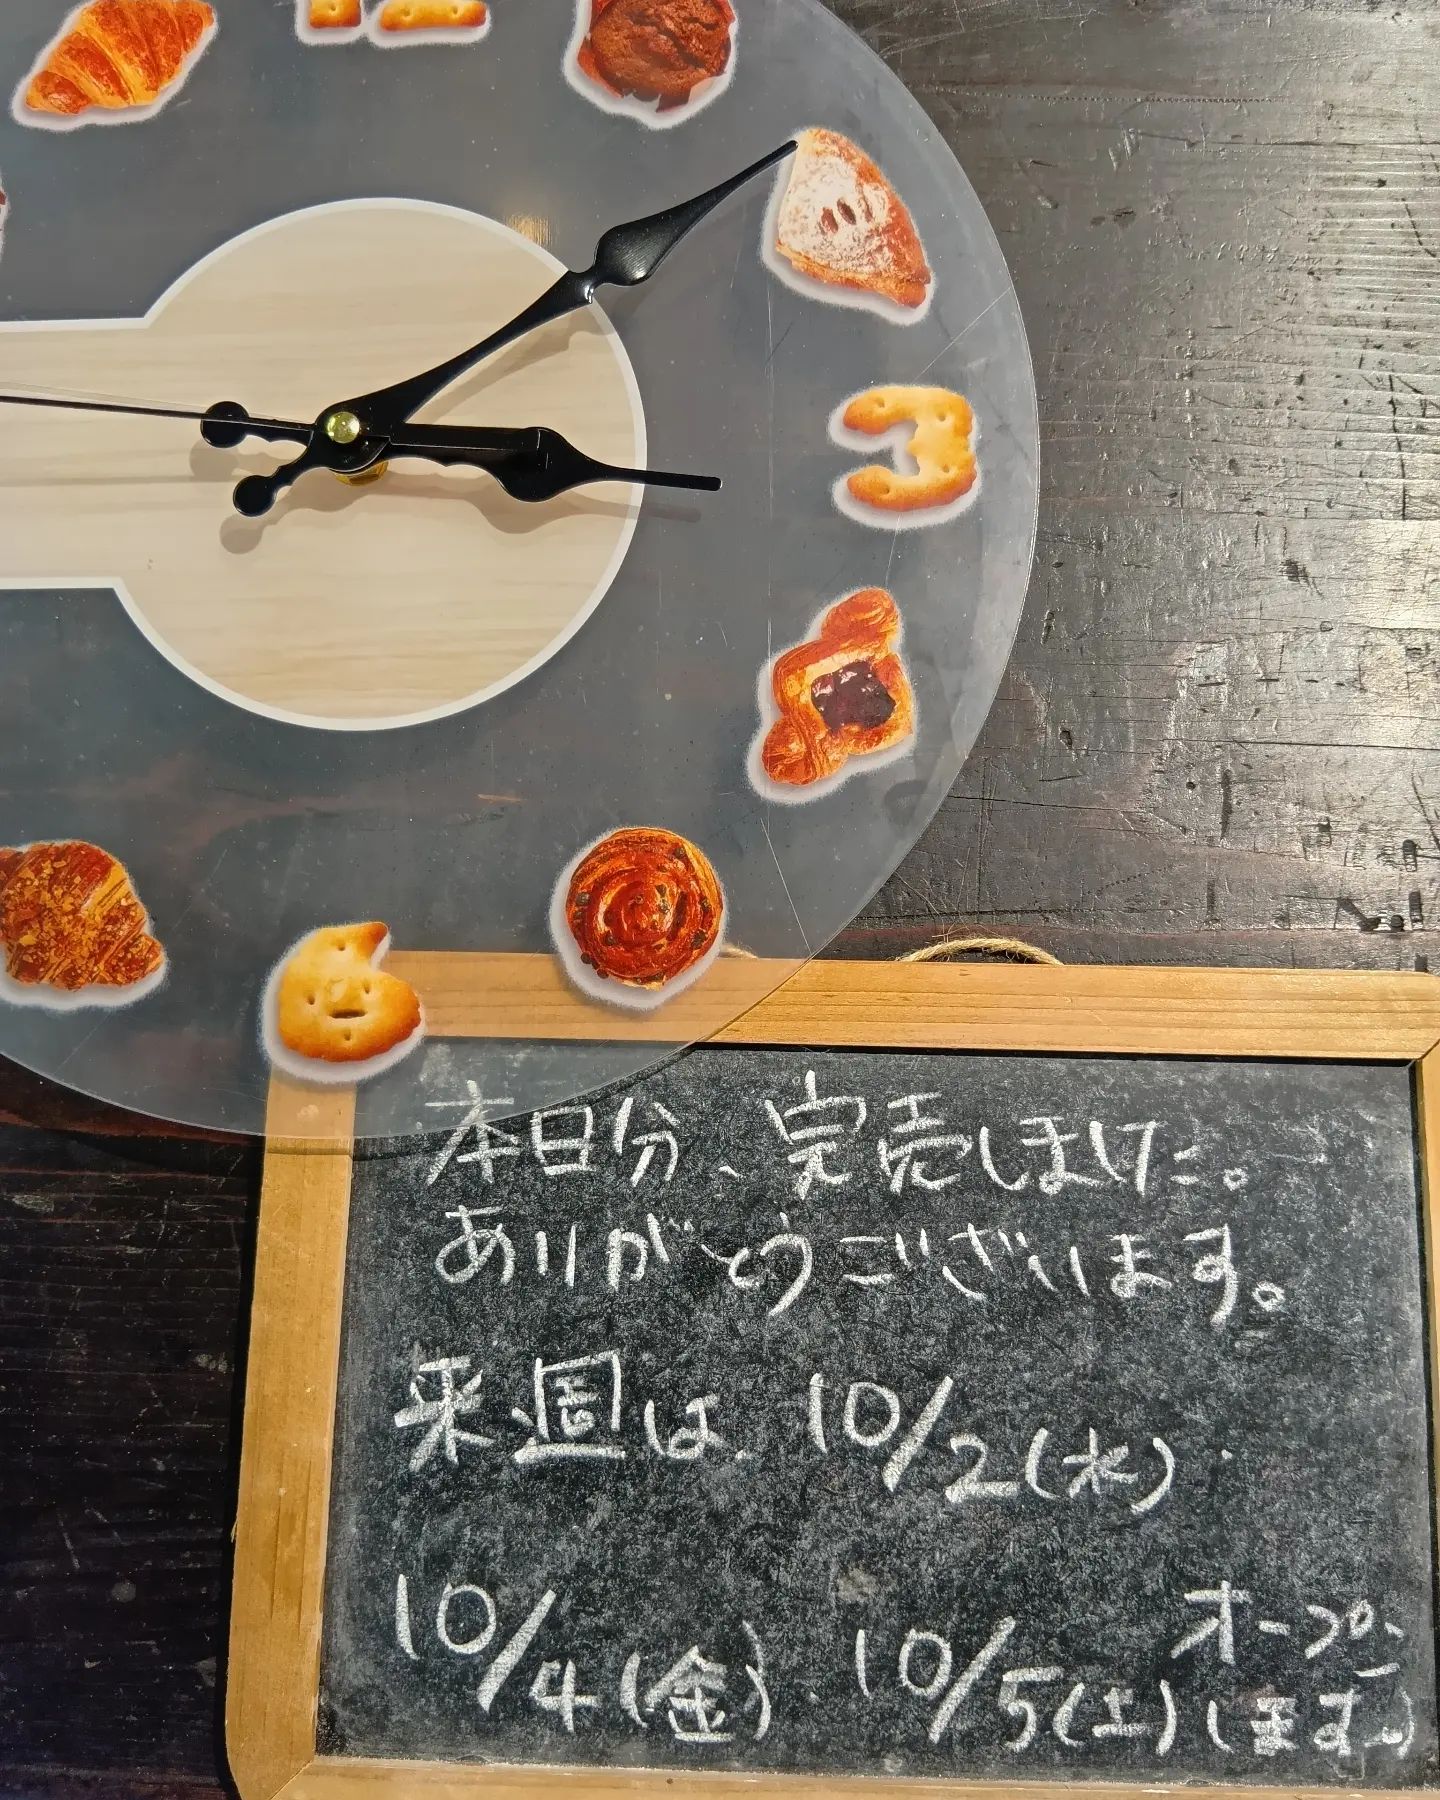 3
6
本日分、完売しました。
ありがとうございます。
来週は、10/2(水)、
10/4(金)、10/5(土)オープン
します。